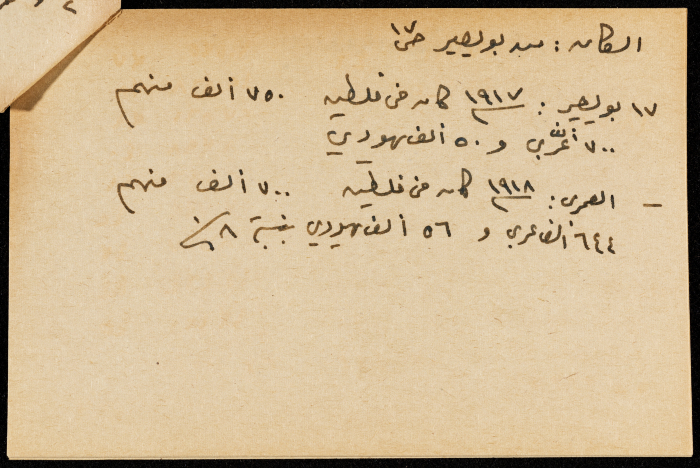 السكان : عند بويصير ص ١٧
١٧ بويصير : ١٩١٧ كان في فلسطين ٧٥٠ ألف منهم
٧٠٠ ألف عربي و ٥٠ ألف يهودي
– العمري : ١٩١٨ كان في فلسطين ٧٠٠ ألف منهم
٦٤٤ ألف عربي و ٥٦ ألف يهودي بنسبة ٨٪